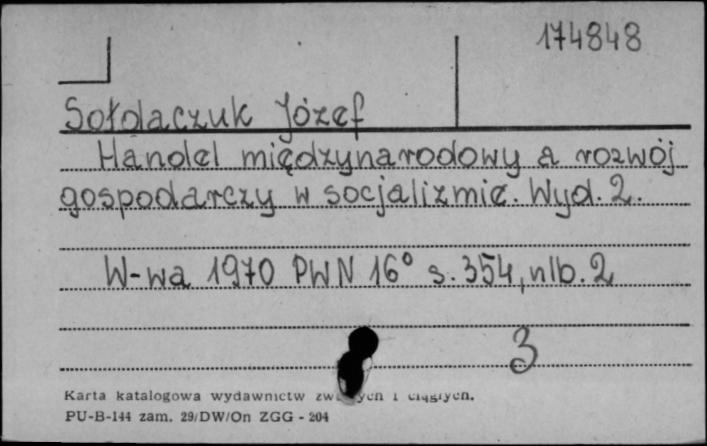 174848
Sołdaczuk Józef
Handel międzynarodowy a rozwój
gospodarczy w socjalizmie. Wyd. 2.
W-wa 1970 PWN 16° s. 354, nlb. 2
3
Karta katalogowa wydawnictw i ciągłych.
PU-B-144 zam. 29/DW/On ZGG - 204